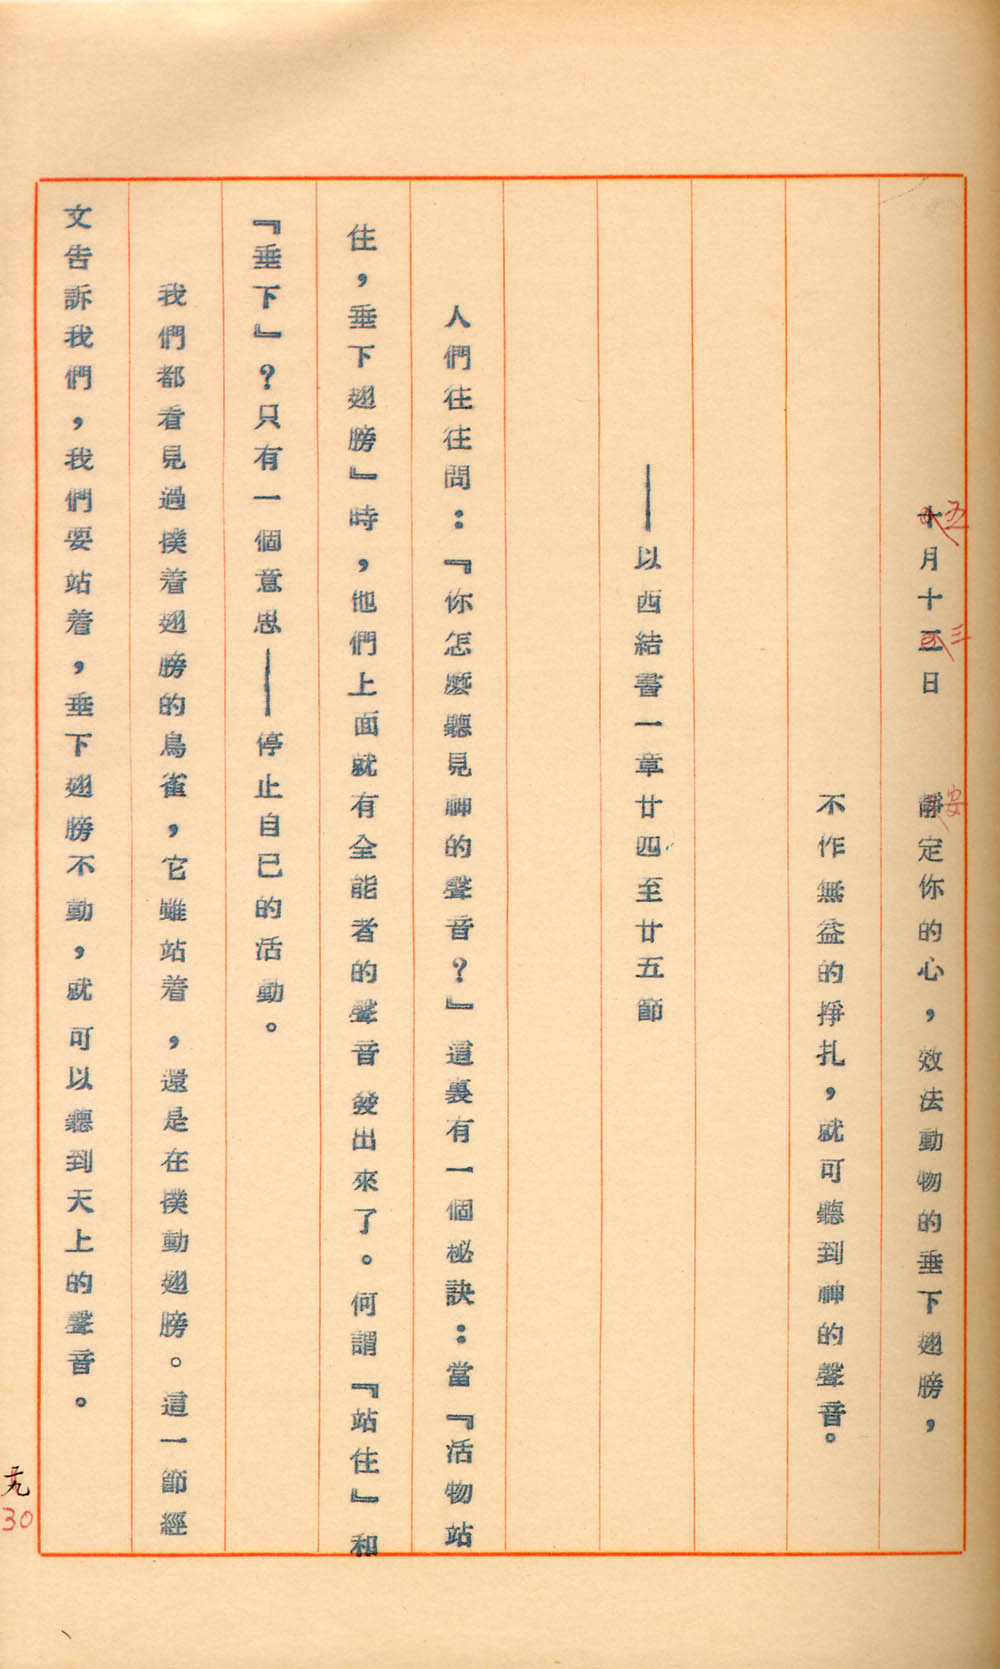 十月十二日　靜定你的心，效法動物的垂下翅膀，
五
三
安
不作無益的掙扎，就可聽到神的聲音。
——以西結書一章廿四至廿五節
人們往往問：『你怎麼聽見神的聲音？』這裏有一個祕訣：當『活物站
住，垂下翅膀』時，他們上面就有全能者的聲音發出來了。何謂『站住』和
『垂下』？只有一個意思——停止自己的活動。
我們都看見過撲着翅膀的鳥雀，它雖站着，還是在撲動翅膀。這一節經
文告訴我們，我們要站着，垂下翅膀不動，就可以聽到天上的聲音。
30